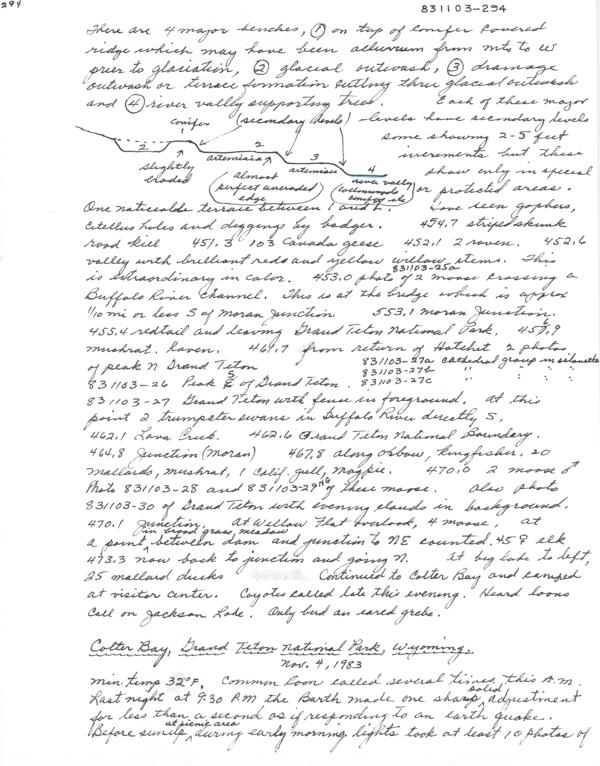 294
831103-294
There are 4 major benches, ① on top of conifer covered
ridge which may have been alluvium from mts to W
prior to glaciation, ② glacial outwash, ③ drainage
outwash or terrace formation cutting thru glacial outwash
and ④ river valley supporting trees. Each of these major
conifer (secondary levels) levels have secondary levels
some showing 2-5 feet
2 2 3 4
increments but these
slightly eroded artemisia artemisia
show only in special
(almost perfect uneroded edge) (river valley cottonwoods conifer etc)
or protected areas.
One noticeable terrace between 1 and 2. have seen gophers,
Citellus holes and diggings by badger. 454.7 striped skunk
road kill 451.3 103 Canada geese 452.1 2 raven. 452.6
valley with brilliant reds and yellow willow stems. This
831103-25a
is extraordinary in color. 453.0 photo of 2 moose crossing a
Buffalo River channel. This is at the bridge which is approx
1/10 mi or less S of Moran Junction 553.1 Moran Junction.
455.4 redtail and leaving Grand Teton National Park. 459.9
muskrat. Raven. 461.7 from return of Hatchet 2 photos
of peak N Grand Teton 831103-27a Cathedral group in silouette
831103-27b " " " "
831103-26 Peak S of Grand Teton. 831103-27c " " "
831103-27 Grand Teton with fence in foreground. At this
point 2 trumpeter swans in Buffalo River directly S.
462.1 Lava Creek. 462.6 Grand Teton National Boundary.
464.8 Junction (Moran) 467.8 along oxbow, kingfisher, 20
mallards, muskrat, 1 Calif. gull, magpie. 470.0 2 moose ♂
Photo 831103-28 and 831103-29 of these moose. Also photo
831103-30 of Grand Teton with evening clouds in background.
470.1 Junction. At Willow Flat overlook, 4 moose, at
in broad grass meadow
a point between dam and junction to NE counted 458 elk
473.3 now back to junction and going N. At big lake to left,
25 mallard ducks Continued to Colter Bay and camped
at visitor center. Coyotes called late this evening. Heard loons
call on Jackson Lake. Only bird an eared grebe.
Colter Bay, Grand Teton National Park, Wyoming.
Nov. 4, 1983
min. temp 32°F. Common loon called several times this A.M.
Last night at 9:30 PM the Earth made one sharp solid adjustment
for less than a second as if responding to an earth quake.
at picnic area
Before sunup during early morning lights took at least 10 photos of